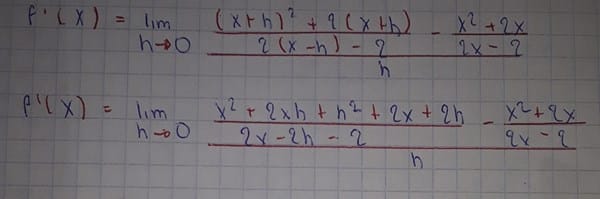 f'(x) = lim h→0 (((x+h)² + 2(x+h)) / (2(x-h) - 2) - (x² + 2x) / (2x - 2)) / h
f'(x) = lim h→0 ((x² + 2xh + h² + 2x + 2h) / (2x - 2h - 2) - (x² + 2x) / (2x - 2)) / h